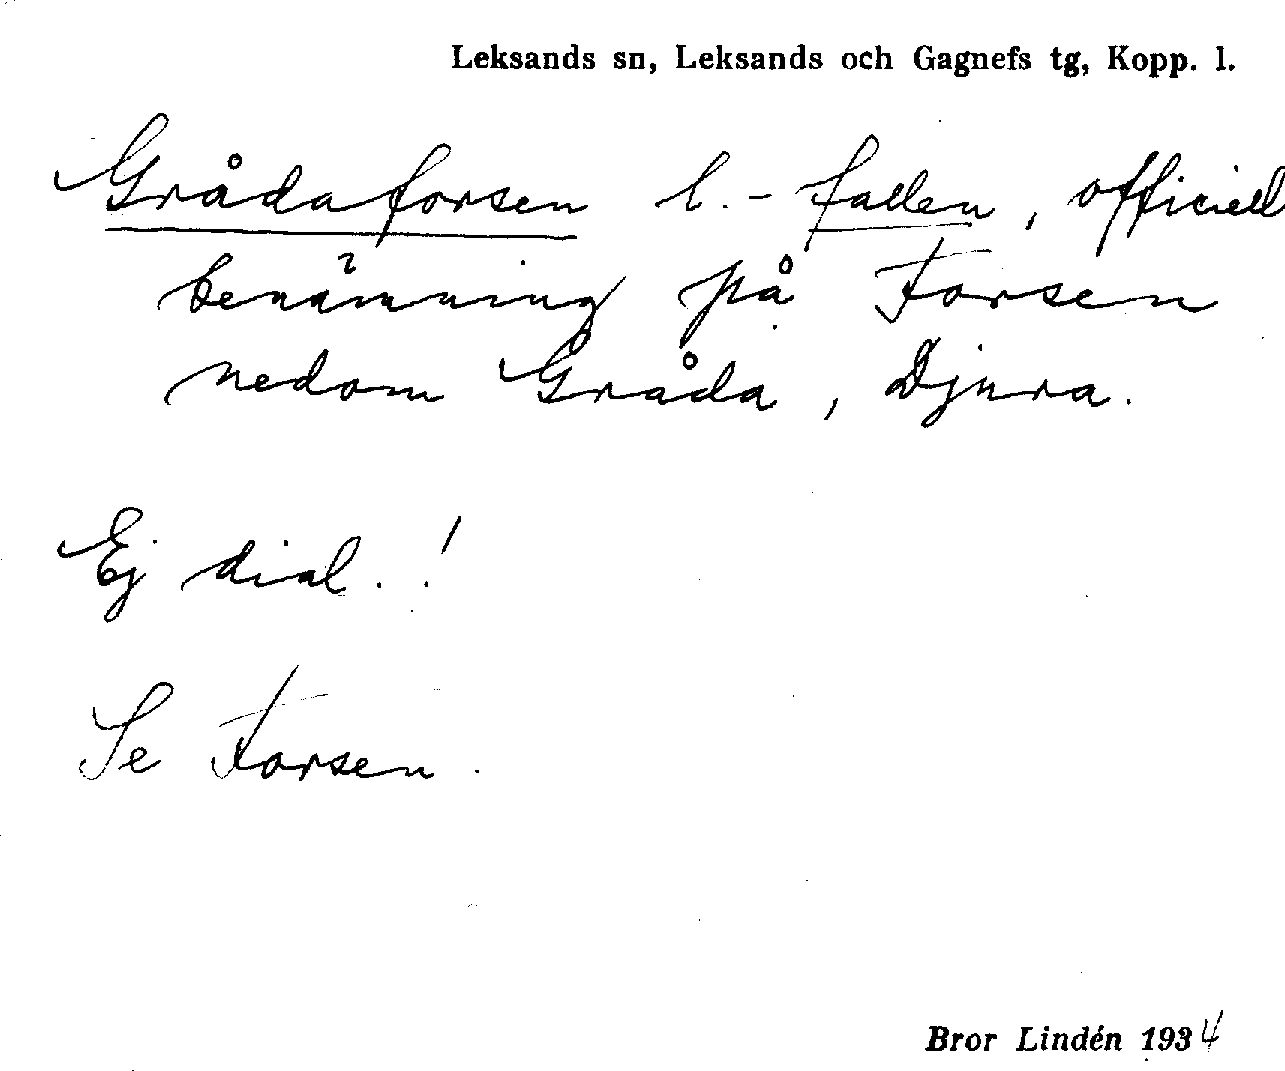 Leksands sn, Leksands och Gagnefs tg, Kopp. l.
Grådaforsen l. -fallen, officiell
benämning på Forsen
nedom Gråda, Djura.
Ej dial.!
Se Forsen.
Bror Lindén 1934